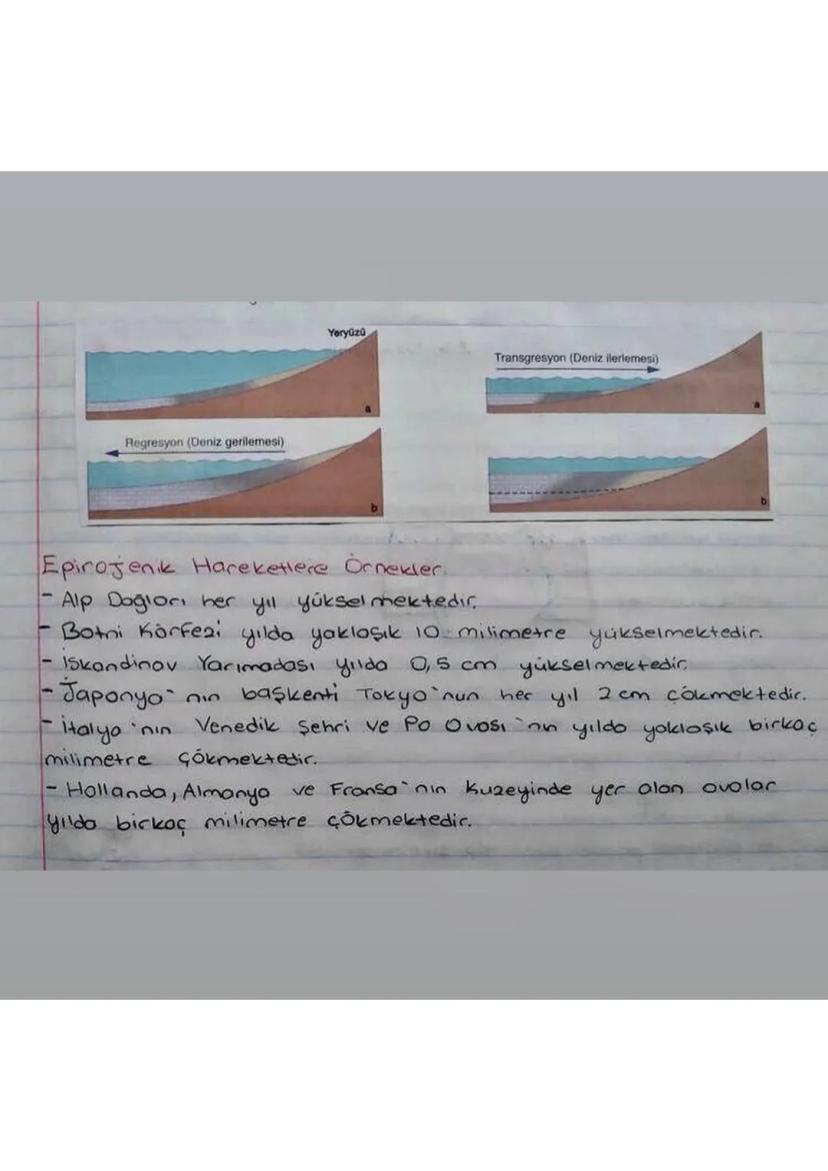 Yeryüzü
a
Regresyon (Deniz gerilemesi)
b
Transgresyon (Deniz ilerlemesi)
a
b
Epirojenik Hareketlere Örnekler
- Alp Dağları her yıl yükselmektedir.
- Botni Körfezi yılda yaklaşık 10 milimetre yükselmektedir.
- İskandinav Yarımadası yılda 0,5 cm yükselmektedir.
- Japonya'nın başkenti Tokyo'nun her yıl 2 cm çökmektedir.
- İtalya'nın Venedik şehri ve Po Ovası'nın yılda yaklaşık birkaç
milimetre çökmektedir.
- Hollanda, Almanya ve Fransa'nın kuzeyinde yer alan ovalar
yılda birkaç milimetre çökmektedir.